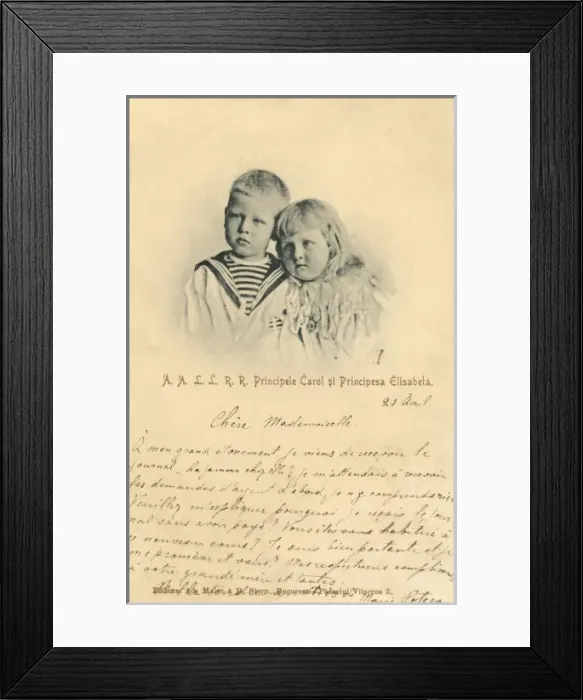 A. A. L. L. R. R. Principele Carol și Principesa Elisabeta.
23 Avl.
Chère Mademoiselle
A mon grand étonement je viens de recevoir le
journal, la femme chez elle, je m'attendais à recevoir
les demandes d'argent d'abord, je n'y comprends rien
Veuillez m'expliquer pourquoi je reçois le jour
nal sans avoir payé? Vous êtes vous habitué à
ce nouveau cours? Je suis bien portante et je
me promène et vous? Mes respectueux complimen
à votre grand mère et tantes.
Editura Ad. Maier & D. Stern, Bucuresci, Palatul Vilacros 3.
Marie